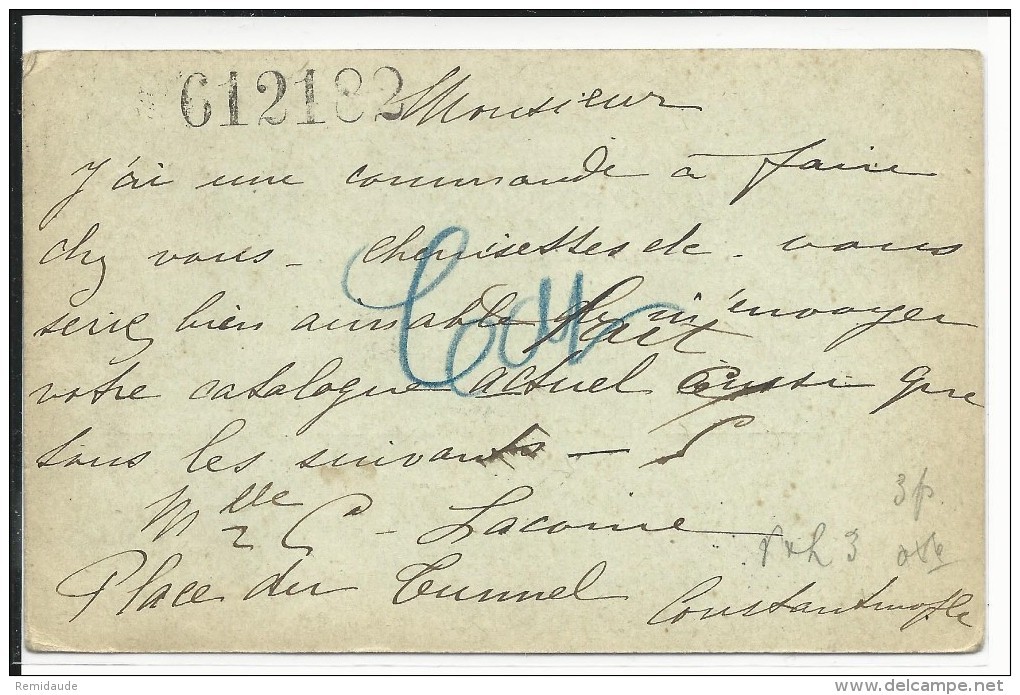 612182 Monsieur
J'ai une commande à faire
chez vous - chemisettes de - vous
seriez bien aimable de m'envoyer
votre catalogue actuel aussi que
tous les suivants -
Mlle C - Lacoine
3p.
3
Place du Tunnel Constantinople
Remidaude
www.delcampe.net